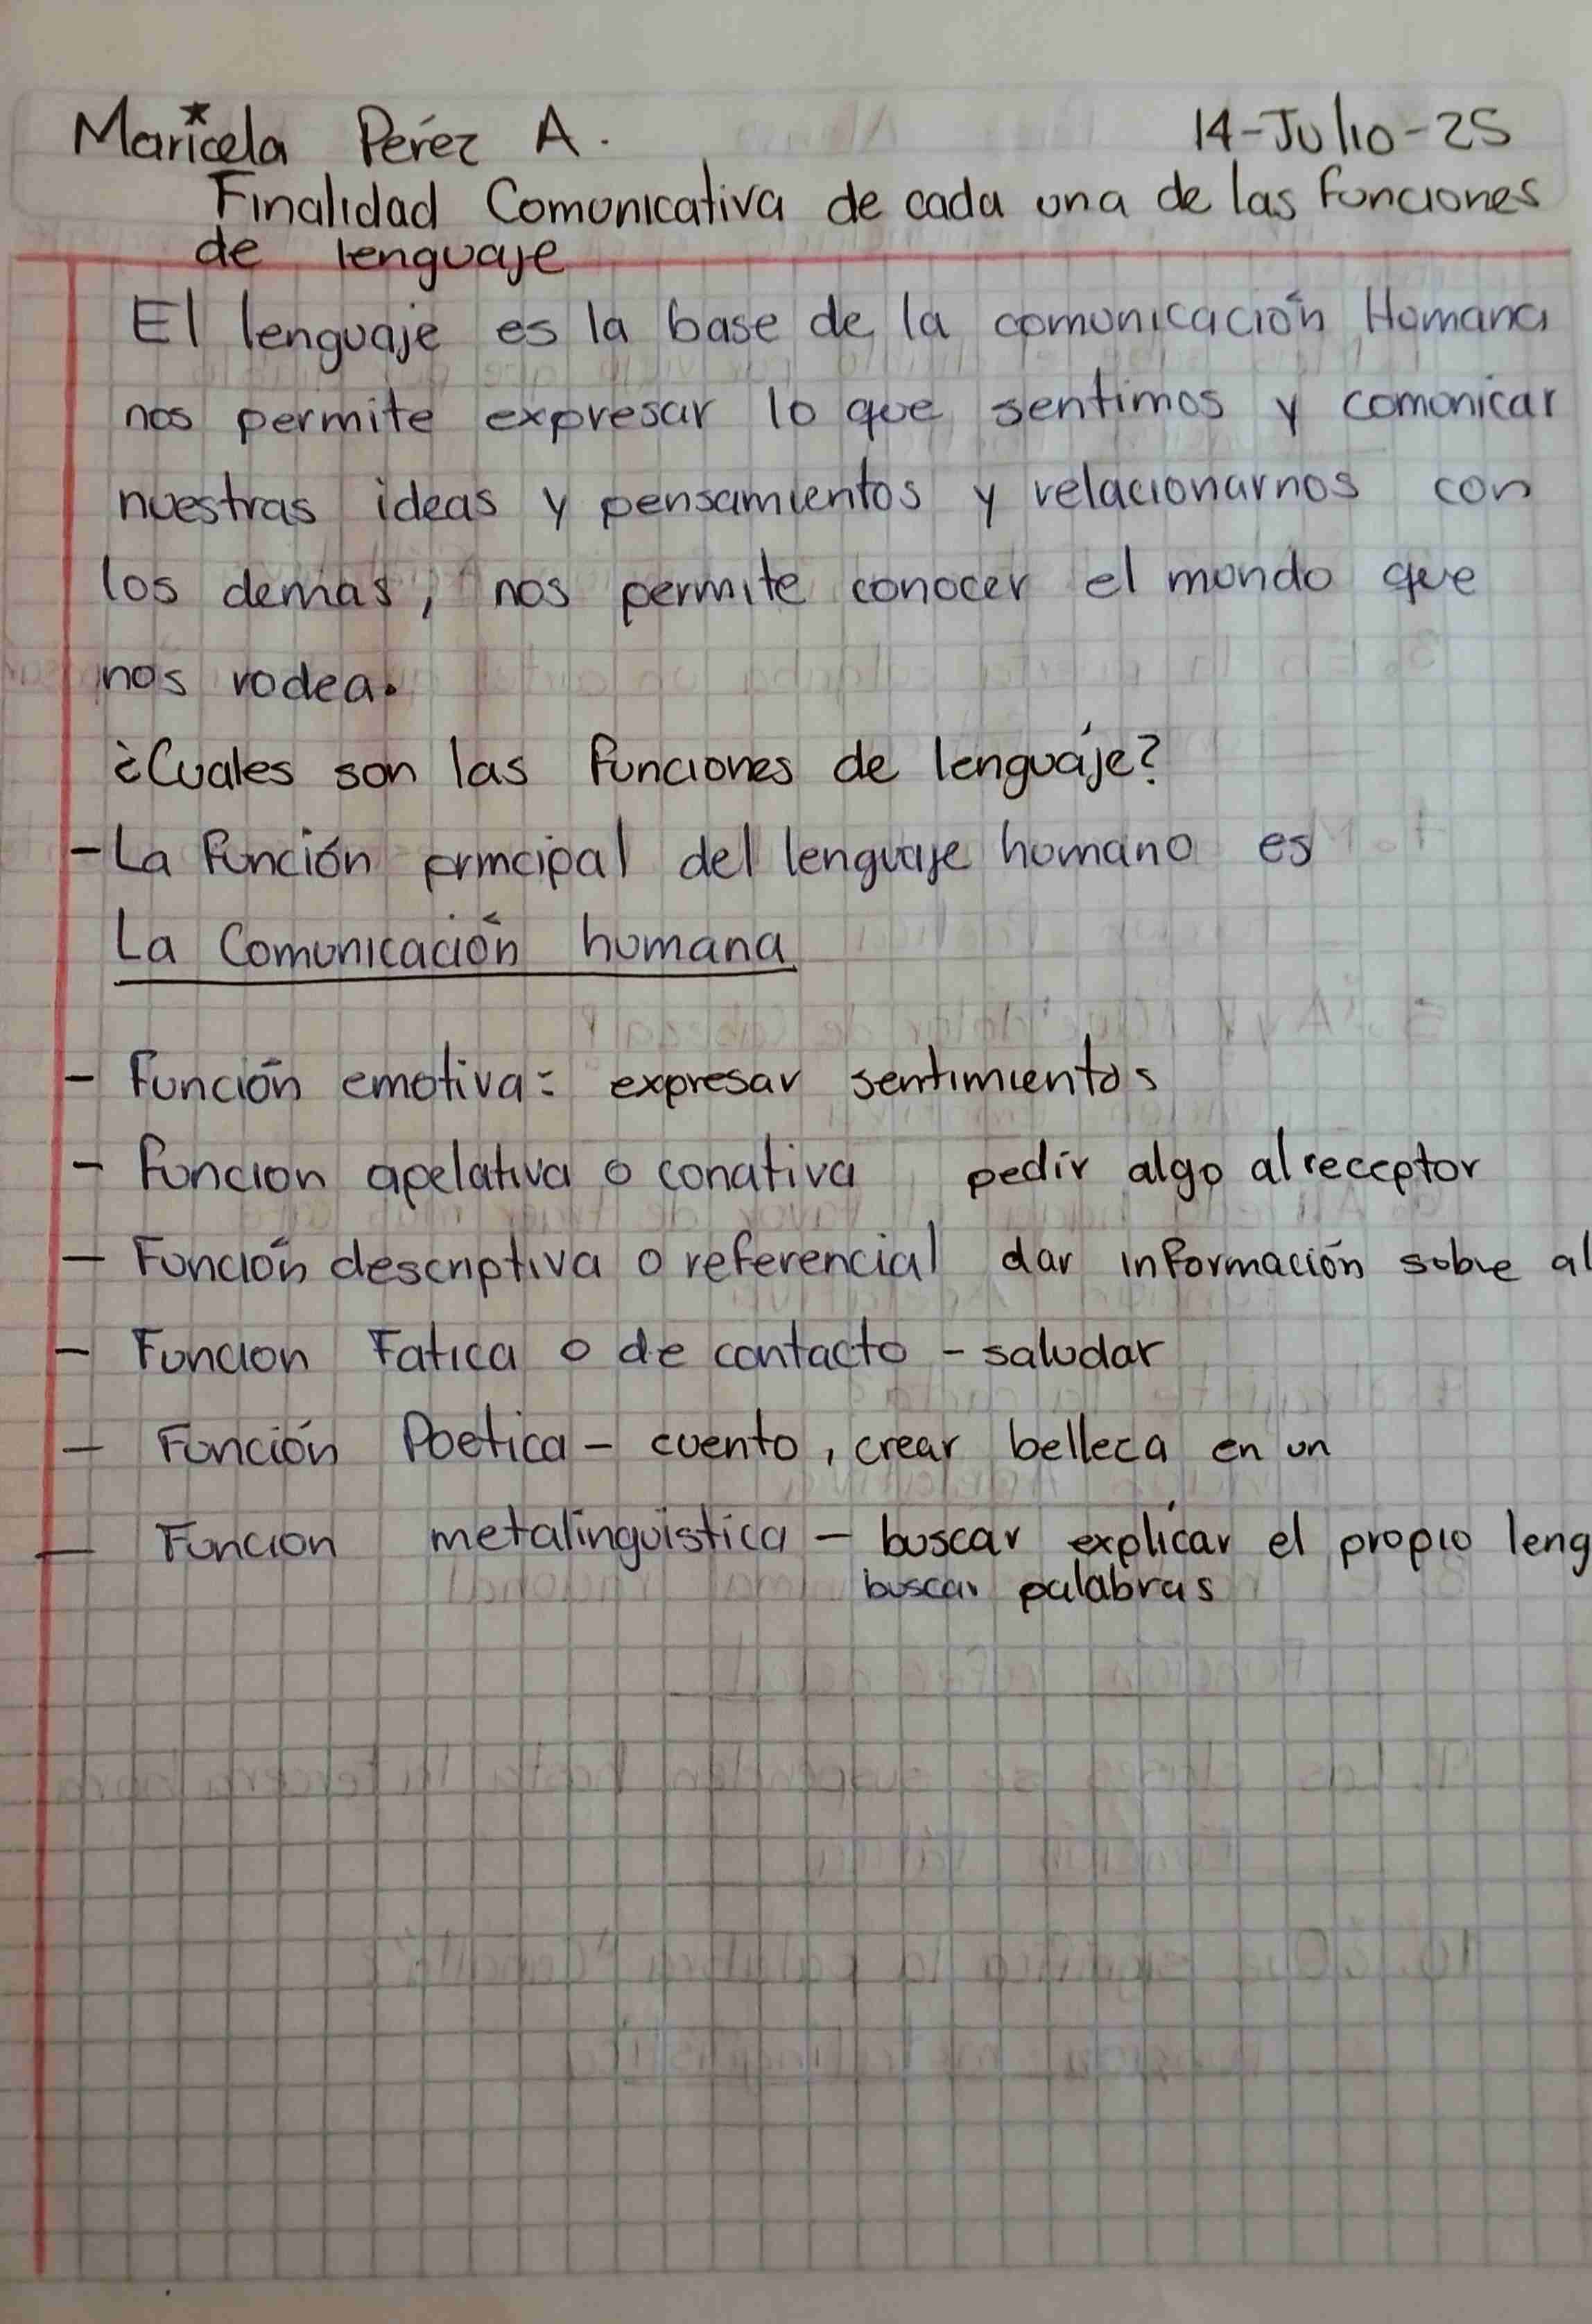 Maricela Peréz A.
14-Julio-25
Finalidad Comunicativa de cada una de las funciones
de lenguaje
El lenguaje es la base de la comunicación Humana
nos permite expresar lo que sentimos y comunicar
nuestras ideas y pensamientos y relacionarnos con
los demas, nos permite conocer el mundo que
nos rodea.
¿Cuales son las funciones de lenguáje?
- La función principal del lenguaje humano es
La Comunicación humana
- Función emotiva: expresar sentimientos
- funcion apelativa o conativa pedir algo al receptor
- Función descriptiva o referencial dar información sobre al
- Funcion Fatica o de contacto - saludar
- Función Poetica - cuento, crear belleca en un
- Funcion metalinguistica - buscar explicar el propio leng
buscar palabras